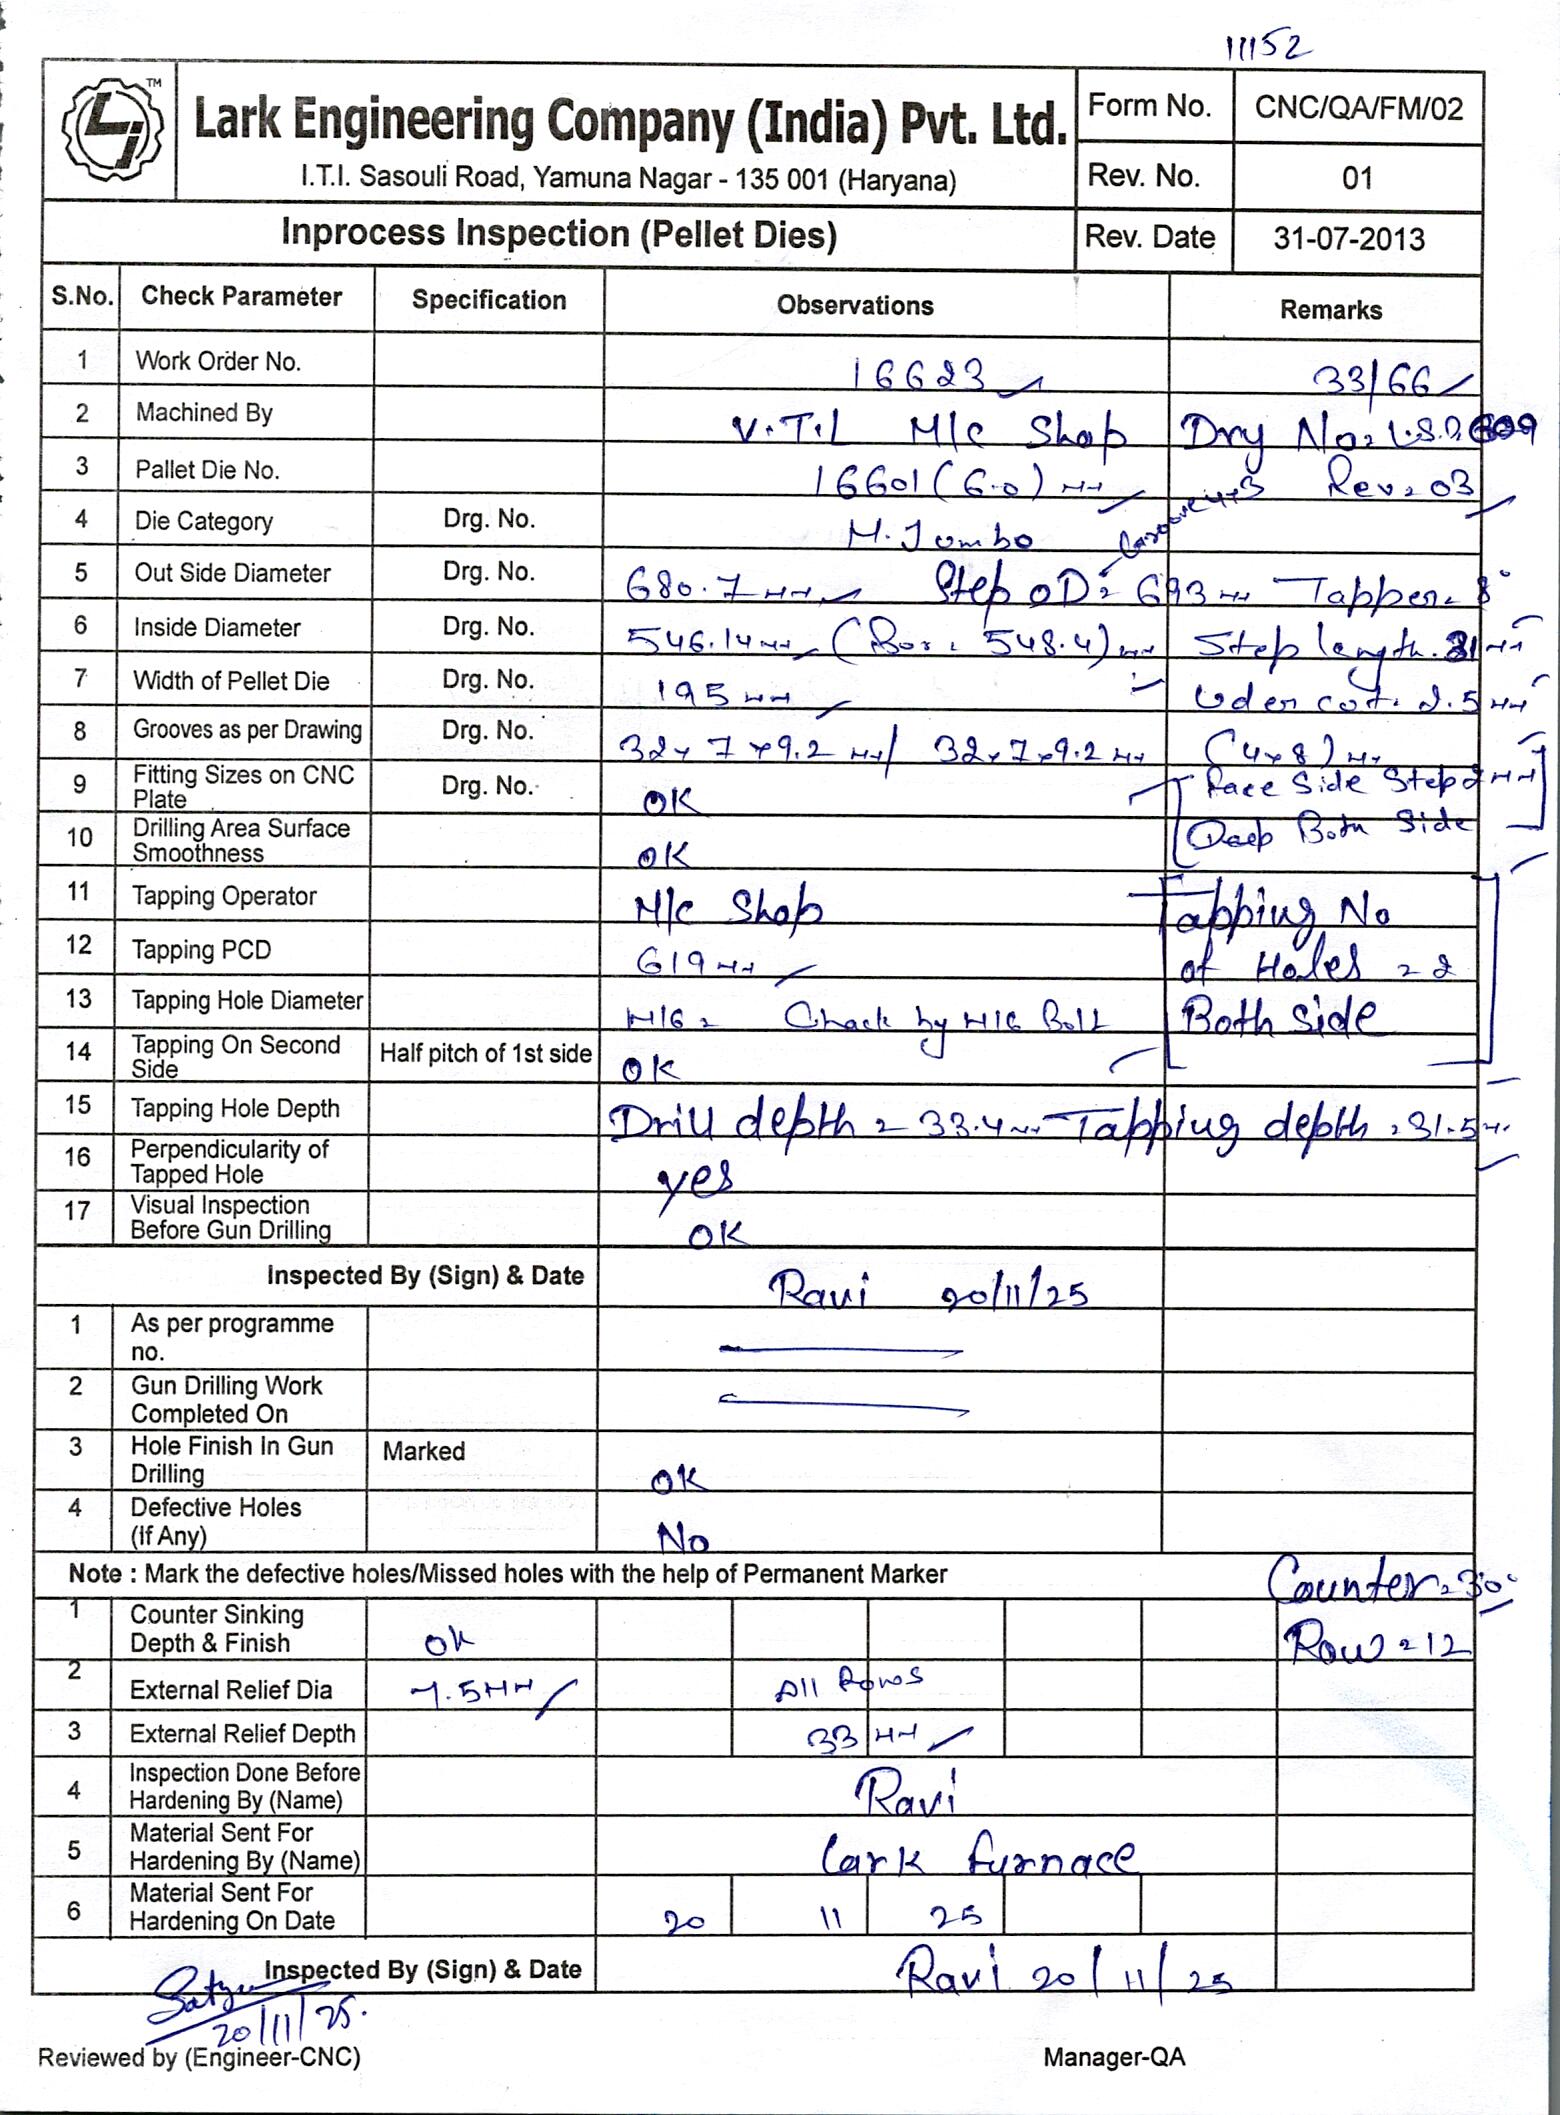 11152
TM
Lark Engineering Company (India) Pvt. Ltd.
I.T.I. Sasouli Road, Yamuna Nagar - 135 001 (Haryana)
Form No. CNC/QA/FM/02
Rev. No. 01
Inprocess Inspection (Pellet Dies)
Rev. Date 31-07-2013
S.No. Check Parameter Specification Observations Remarks
1 Work Order No. 16623 33/66
2 Machined By V.T.L M/c Shop Dry No= L.S.D.
3 Pallet Die No. 16601 (6.0) MM Rev = 03
4 Die Category Drg. No. M. Jumbo
5 Out Side Diameter Drg. No. 680.7 MM Step OD = 693 MM Tapper = 8°
6 Inside Diameter Drg. No. 546.14 MM (Bor = 548.4) MM Step length = 31 MM
7 Width of Pellet Die Drg. No. 195 MM Uder cut = 2.5 MM
8 Grooves as per Drawing Drg. No. 32x7x9.2 MM / 32x7x9.2 MM (4x8) MM
9 Fitting Sizes on CNC Plate Drg. No. OK Face Side Step 2 MM
10 Drilling Area Surface Smoothness OK Deep Both Side
11 Tapping Operator M/c Shop Tapping No
12 Tapping PCD 619 MM of Holes = 2
13 Tapping Hole Diameter M16 = Chack by M16 Bolt Both Side
14 Tapping On Second Side Half pitch of 1st side OK
15 Tapping Hole Depth Drill depth = 33.4 MM Tapping depth = 31.5 MM
16 Perpendicularity of Tapped Hole yes
17 Visual Inspection Before Gun Drilling OK
Inspected By (Sign) & Date Ravi 20/11/25
1 As per programme no.
2 Gun Drilling Work Completed On
3 Hole Finish In Gun Drilling Marked OK
4 Defective Holes (If Any) No
Note : Mark the defective holes/Missed holes with the help of Permanent Marker Counter = 30°
1 Counter Sinking Depth & Finish OK Row = 12
2 External Relief Dia 7.5 MM All Rows
3 External Relief Depth 33 MM
4 Inspection Done Before Hardening By (Name) Ravi
5 Material Sent For Hardening By (Name) Lark furnace
6 Material Sent For Hardening On Date 20 11 25
Inspected By (Sign) & Date Ravi 20/11/25
20/11/25.
Reviewed by (Engineer-CNC) Manager-QA